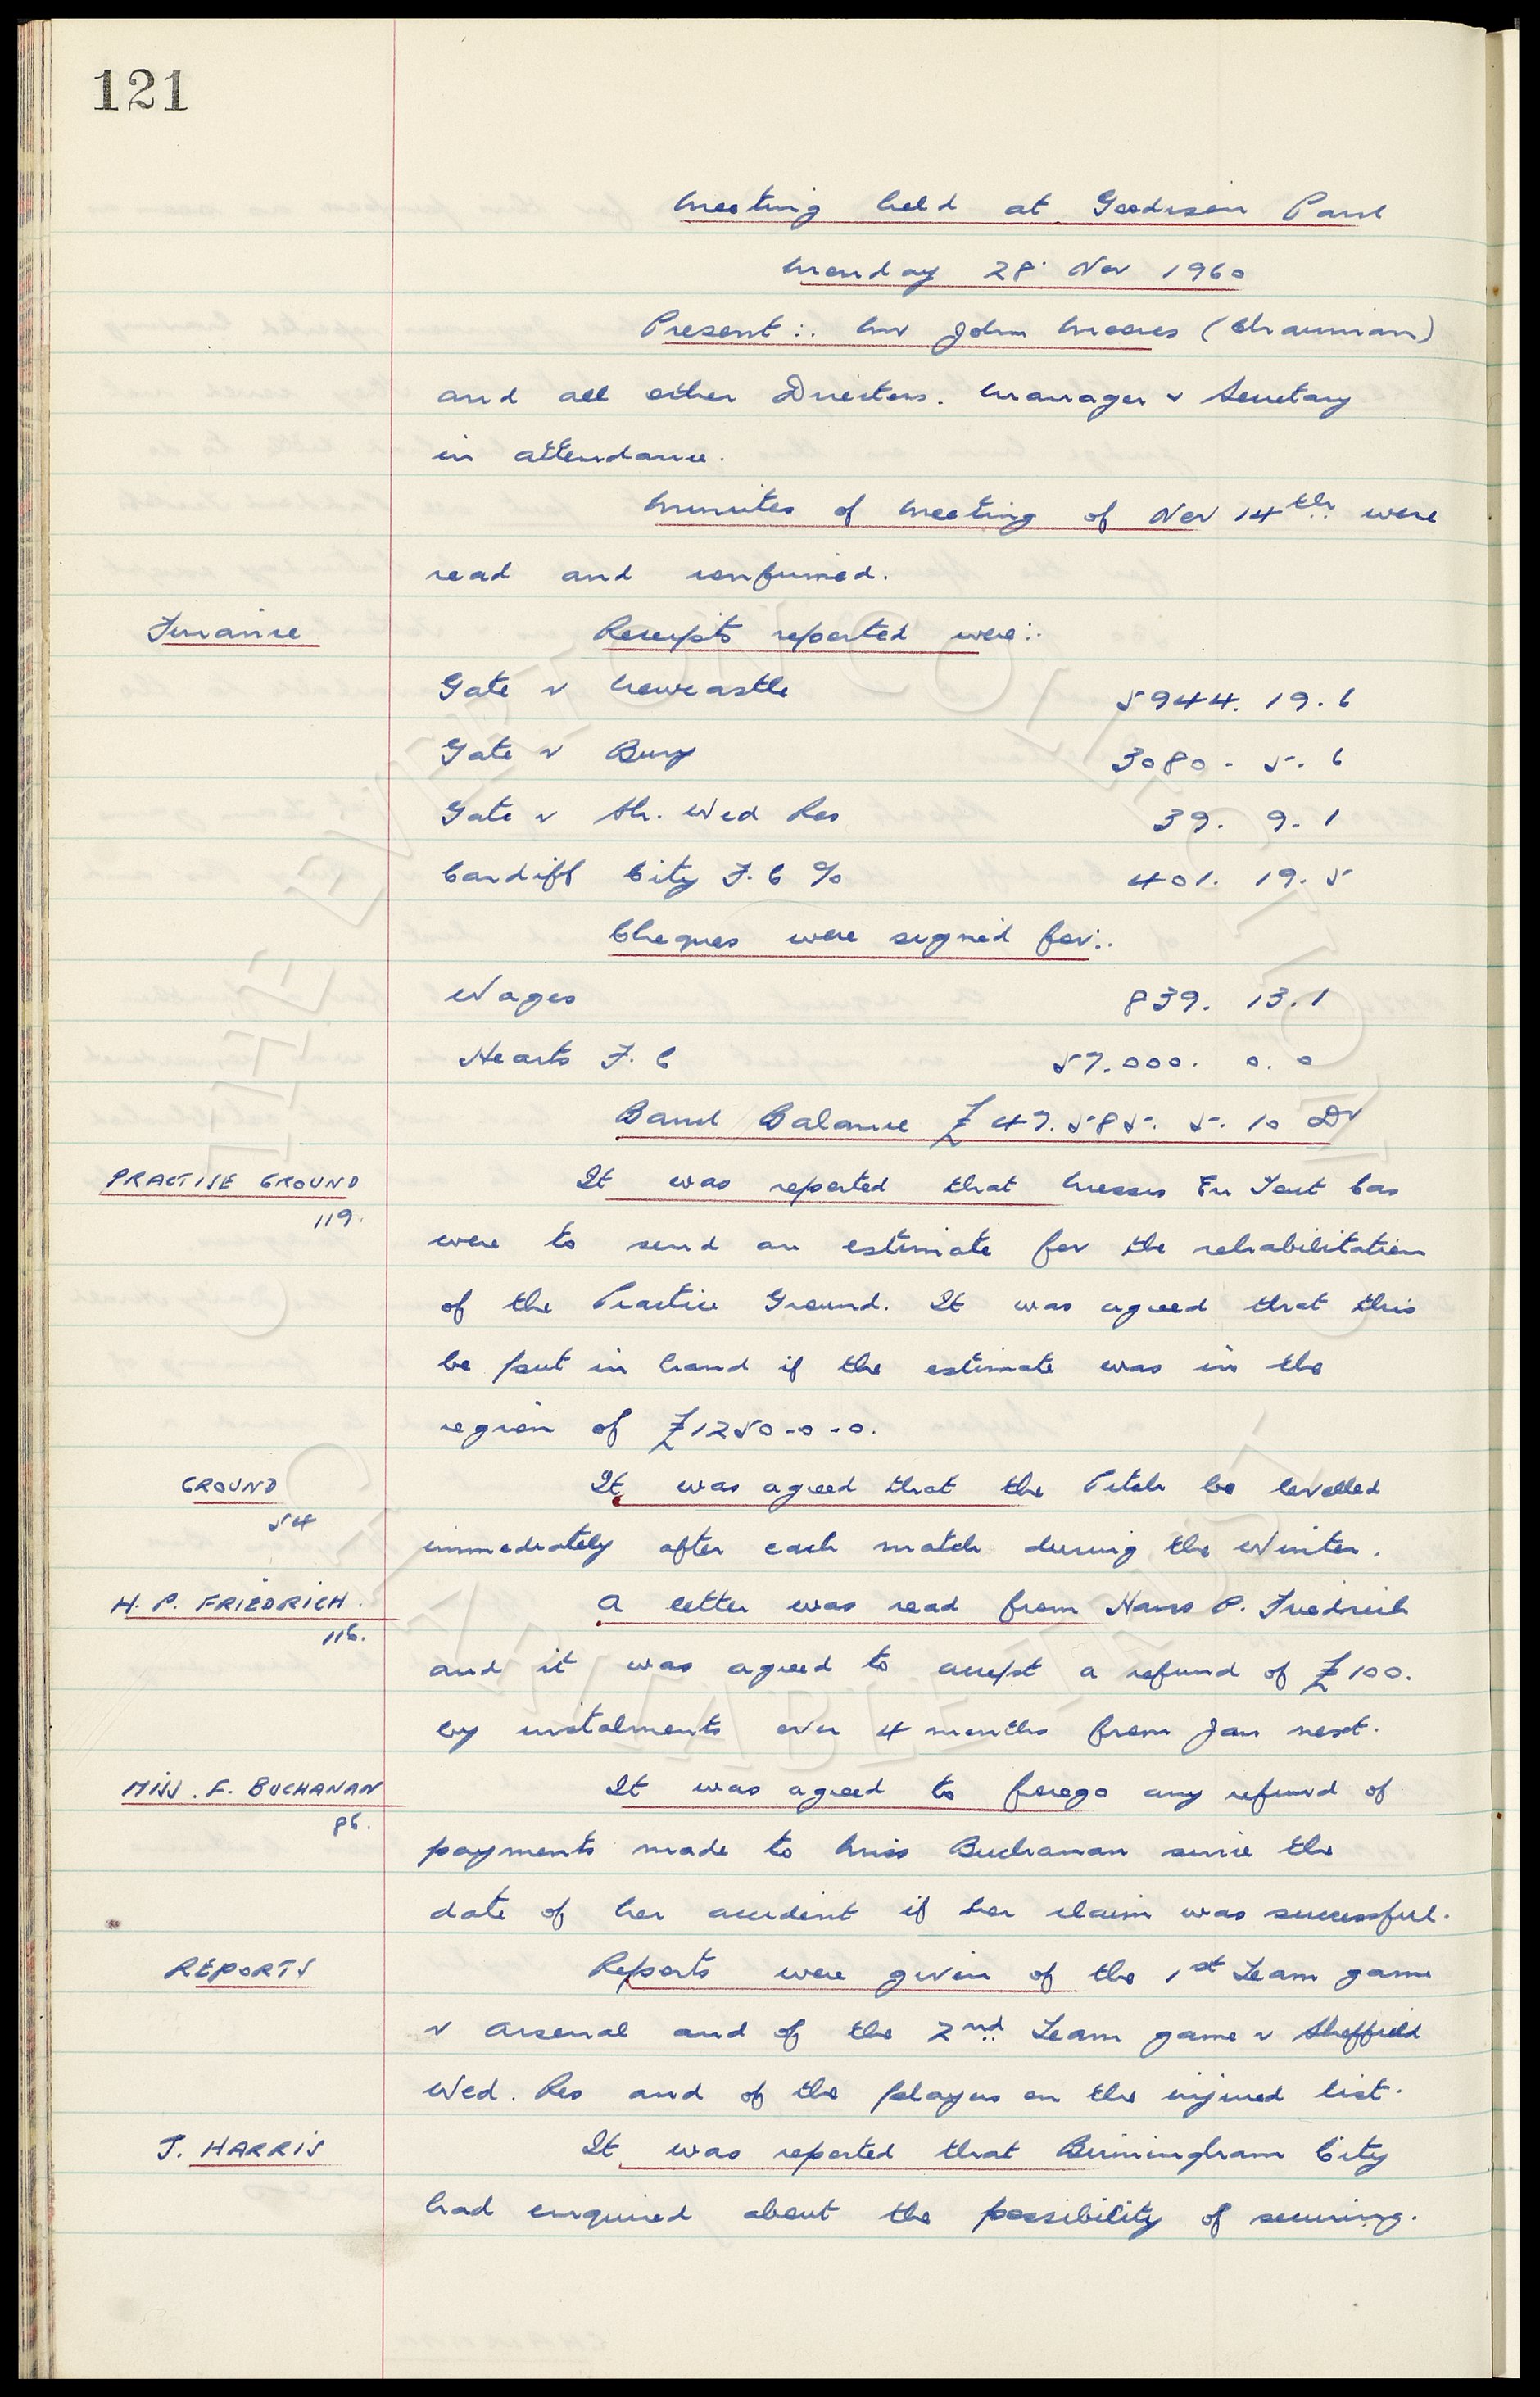 121
Meeting held at Goodison Park
Monday 28 Nov 1960
Present:. Mr John Moores (Chairman)
and all other Directors. Manager & Secretary
in attendance.
Minutes of Meeting of Nov 14th were
read and confirmed.
Finance Receipts reported were:.
Gate v Newcastle 5944. 19. 6
Gate v Bury 3080. 5. 6
Gate v Sh. Wed Res 39. 9. 1
Cardiff City F.C % 401. 19. 5
Cheques were signed for:.
Wages 839. 13. 1
Hearts F.C 57.000. 0. 0
Bank Balance £47.585. 5. 10 Dr
PRACTISE GROUND It was reported that Messrs En Tout Cas
119.
were to send an estimate for the rehabilitation
of the Practice Ground. It was agreed that this
be put in hand if the estimate was in the
region of £1250-0-0.
GROUND It was agreed that the Pitch be levelled
54
immediately after each match during the Winter.
H. P. FRIEDRICH. A letter was read from Hans P. Friedrich
116.
and it was agreed to accept a refund of £100.
by instalments over 4 months from Jan next.
MISS. F. BUCHANAN It was agreed to forego any refund of
86.
payments made to Miss Buchanan since the
date of her accident if her claim was successful.
REPORTS Reports were given of the 1st Team game
v Arsenal and of the 2nd Team game v Sheffield
Wed. Res and of the players on the injured list.
J. HARRIS It was reported that Birmingham City
had enquired about the possibility of securing.